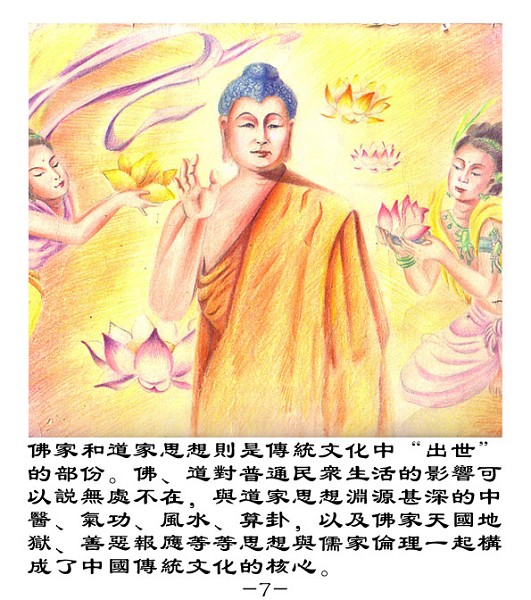 佛家和道家思想則是傳統文化中“出世”
的部份。佛、道對普通民衆生活的影響可
以説無處不在，與道家思想淵源甚深的中
醫、氣功、風水、算卦，以及佛家天國地
獄、善惡報應等等思想與儒家倫理一起構
成了中國傳統文化的核心。
—7—